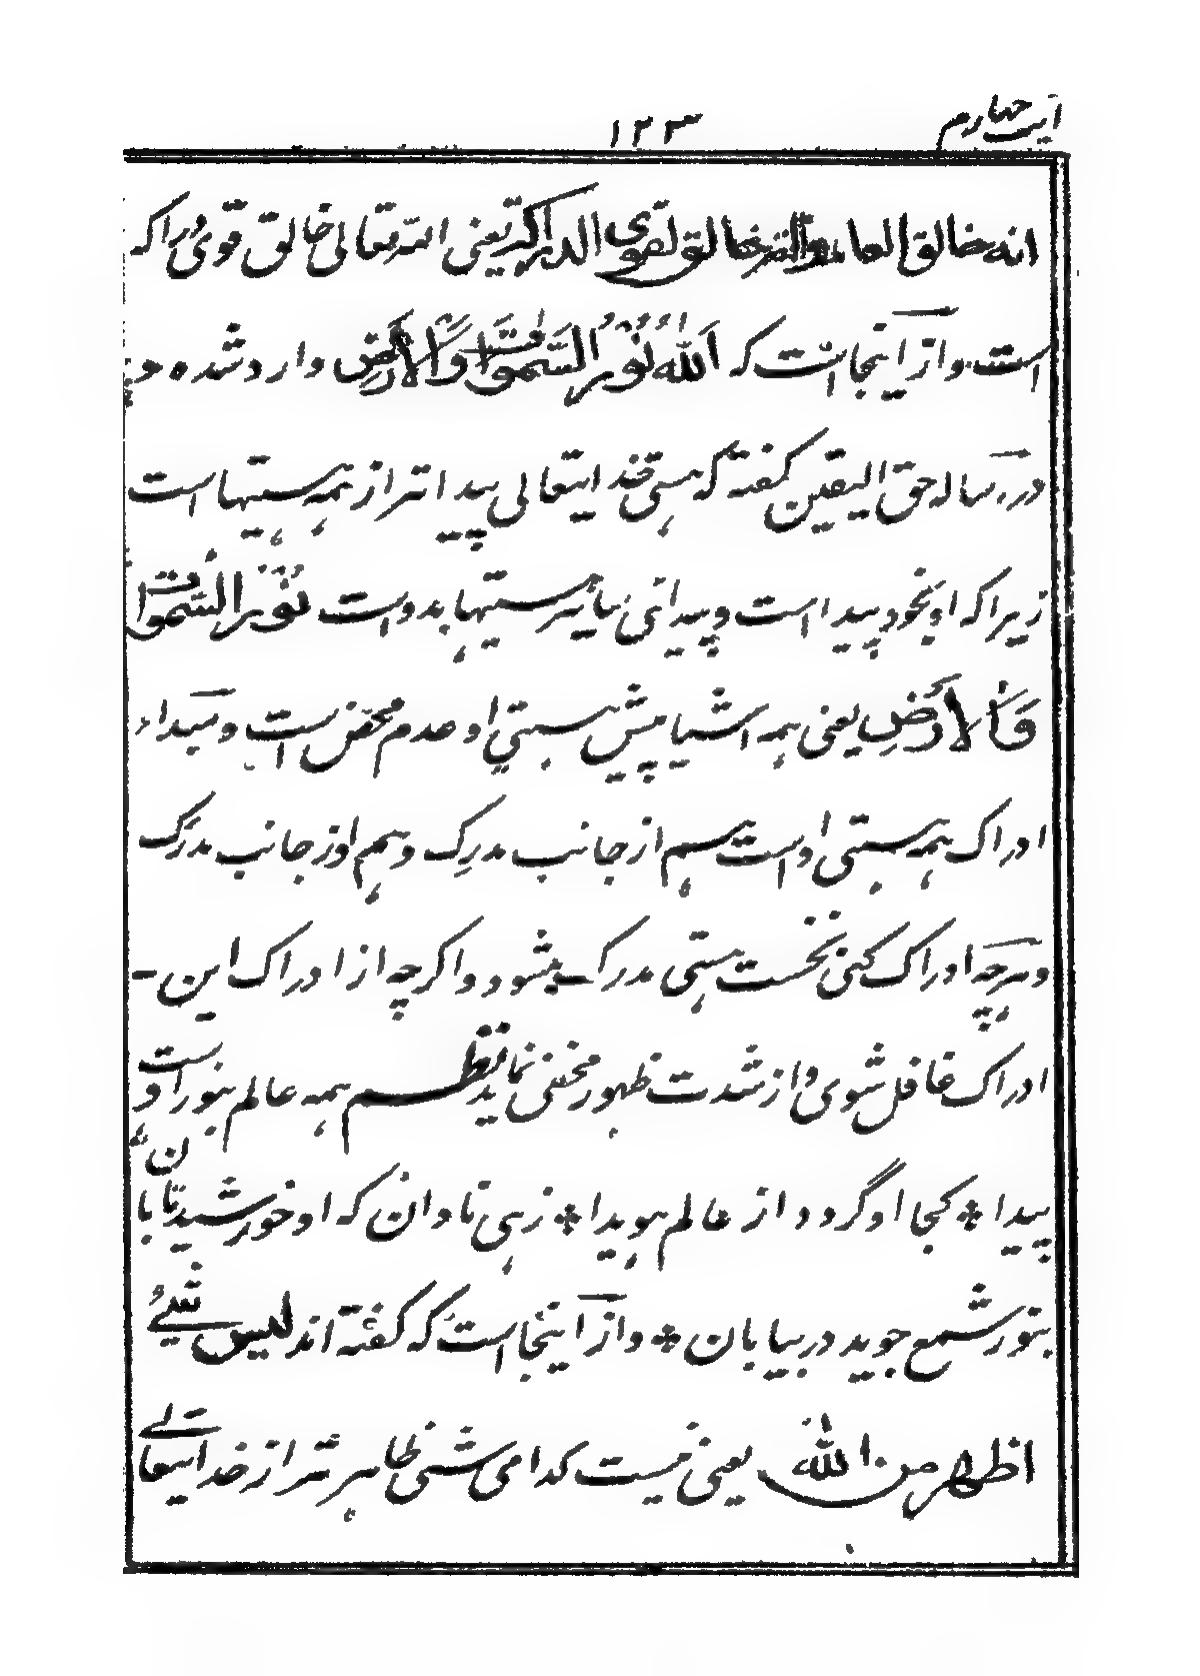 آیت چهارم
۱۲۳
انه خالق العالم والقمر خالق لقوى الدراكة یعنی الله تعالی خالق قوی دراکه
است و از آینجا است که اَللّٰهُ نُوْرُ السَّمٰوٰتِ وَالْأَرْضِ وارد شده و
در رساله حق الیقین گفته که هستی خدایتعالی پیدا تر از همه هستیها است
زیرا که او بخود پیدا است و پیدائی سایر هستیها بدوست نُوْرُ السَّمٰوٰتِ
وَالْأَرْضِ یعنی همه اشیا پیش هستی او عدم محض است و مبداء
ادراک همه هستی او است هم از جانب مدرِک و هم از جانب مدرَک
و هرچه ادراک کنی نخست هستی مدرک میشود و اگرچه از ادراک این -
ادراک غافل شوی و از شدت ظهور مخفی نماید نظم همه عالم بنور اوست
پیدا * کجا او گردد از عالم هویدا * زهی نادان که او خورشید تابان
بنور شمع جوید در بیابان * و از آینجا است که گفته اند لیس شیئ
اظهر من الله یعنی نیست کدامی شی ظاهر تر از خدایتعالے